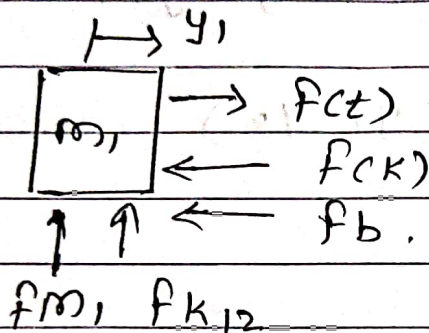 y1
m1
f(t)
f(k)
fb.
fm1 fk12